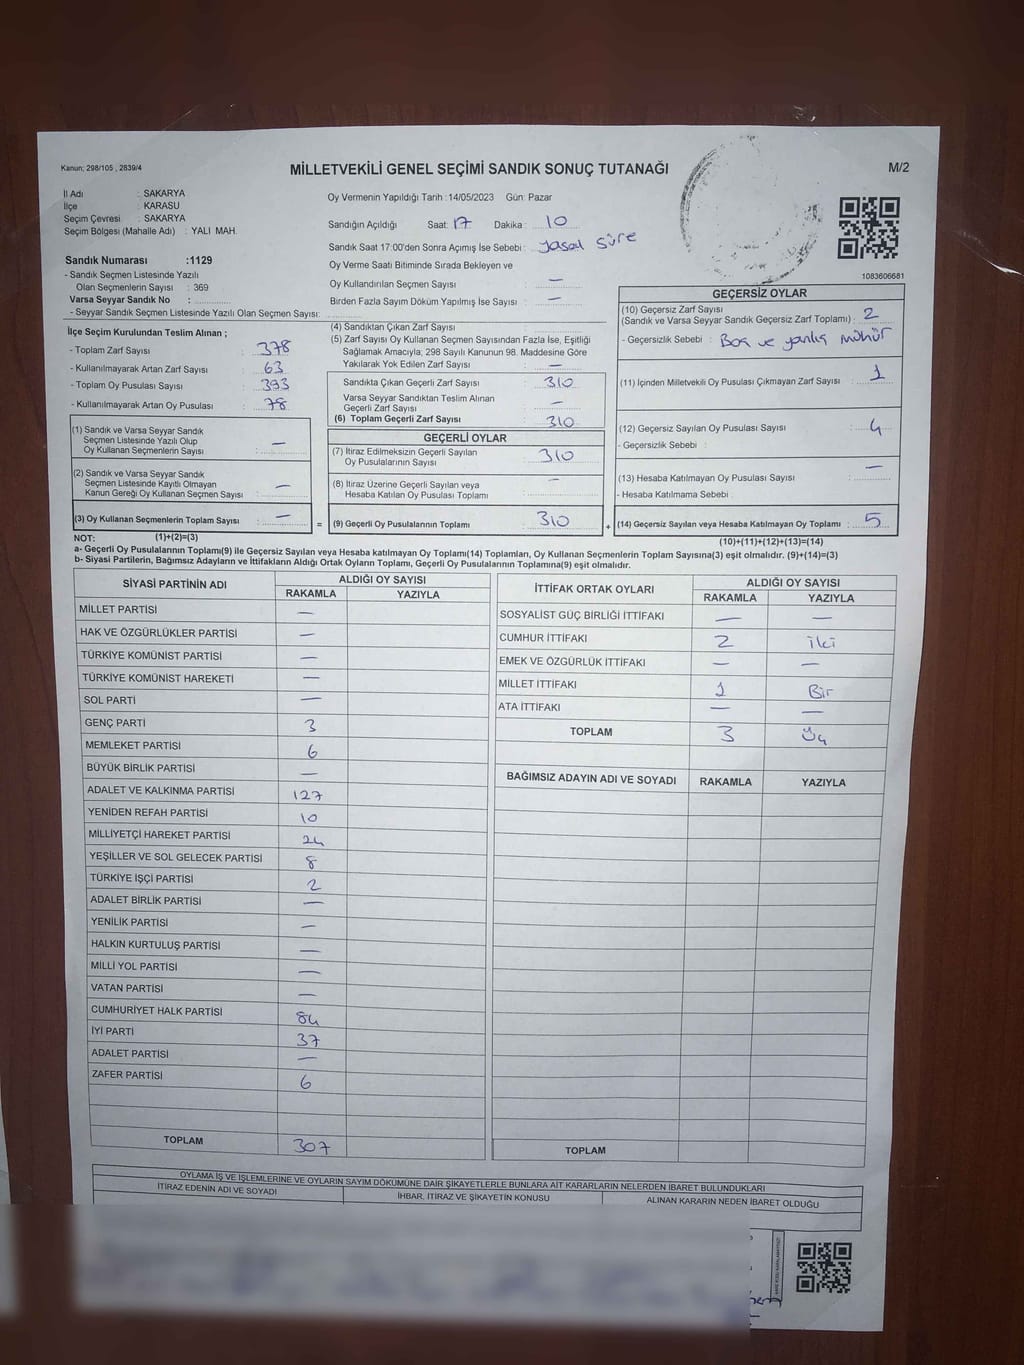 Kanun; 298/105 , 2839/4
MİLLETVEKİLİ GENEL SEÇİMİ SANDIK SONUÇ TUTANAĞI
M/2
İl Adı : SAKARYA
İlçe : KARASU
Seçim Çevresi : SAKARYA
Seçim Bölgesi (Mahalle Adı) : YALI MAH.
Sandık Numarası :1129
- Sandık Seçmen Listesinde Yazılı
Olan Seçmenlerin Sayısı : 369
Varsa Seyyar Sandık No :
- Seyyar Sandık Seçmen Listesinde Yazılı Olan Seçmen Sayısı:
Oy Vermenin Yapıldığı Tarih :14/05/2023 Gün: Pazar
Sandığın Açıldığı Saat: 17 Dakika : 10
Sandık Saat 17:00'den Sonra Açımış İse Sebebi : Yasal Süre
Oy Verme Saati Bitiminde Sırada Bekleyen ve
Oy Kullandırılan Seçmen Sayısı : —
Birden Fazla Sayım Döküm Yapılmış İse Sayısı : —
1083606681
İlçe Seçim Kurulundan Teslim Alınan ;
- Toplam Zarf Sayısı : 378
- Kullanılmayarak Artan Zarf Sayısı : 63
- Toplam Oy Pusulası Sayısı : 393
- Kullanılmayarak Artan Oy Pusulası : 78
(1) Sandık ve Varsa Seyyar Sandık
Seçmen Listesinde Yazılı Olup
Oy Kullanan Seçmenlerin Sayısı : —
(2) Sandık ve Varsa Seyyar Sandık
Seçmen Listesinde Kayıtlı Olmayan
Kanun Gereği Oy Kullanan Seçmen Sayısı : —
(3) Oy Kullanan Seçmenlerin Toplam Sayısı : — =
(1)+(2)=(3)
(4) Sandıktan Çıkan Zarf Sayısı :
(5) Zarf Sayısı Oy Kullanan Seçmen Sayısından Fazla İse, Eşitliği
Sağlamak Amacıyla, 298 Sayılı Kanunun 98. Maddesine Göre
Yakılarak Yok Edilen Zarf Sayısı : —
Sandıkta Çıkan Geçerli Zarf Sayısı : 310
Varsa Seyyar Sandıktan Teslim Alınan
Geçerli Zarf Sayısı : —
(6) Toplam Geçerli Zarf Sayısı : 310
GEÇERLİ OYLAR
(7) İtiraz Edilmeksizin Geçerli Sayılan
Oy Pusulalarının Sayısı : 310
(8) İtiraz Üzerine Geçerli Sayılan veya
Hesaba Katılan Oy Pusulası Toplamı : —
(9) Geçerli Oy Pusulalarının Toplamı : 310 +
GEÇERSİZ OYLAR
(10) Geçersiz Zarf Sayısı
(Sandık ve Varsa Seyyar Sandık Geçersiz Zarf Toplamı) : 2
- Geçersizlik Sebebi : Boş ve yanlış mühür
(11) İçinden Milletvekili Oy Pusulası Çıkmayan Zarf Sayısı : 1
(12) Geçersiz Sayılan Oy Pusulası Sayısı : 4
- Geçersizlik Sebebi :
(13) Hesaba Katılmayan Oy Pusulası Sayısı : —
- Hesaba Katılmama Sebebi :
(14) Geçersiz Sayılan veya Hesaba Katılmayan Oy Toplamı : 5
(10)+(11)+(12)+(13)=(14)
NOT:
a- Geçerli Oy Pusulalarının Toplamı(9) ile Geçersiz Sayılan veya Hesaba katılmayan Oy Toplamı(14) Toplamları, Oy Kullanan Seçmenlerin Toplam Sayısına(3) eşit olmalıdır. (9)+(14)=(3)
b- Siyasi Partilerin, Bağımsız Adayların ve İttifakların Aldığı Ortak Oyların Toplamı, Geçerli Oy Pusulalarının Toplamına(9) eşit olmalıdır.
SİYASİ PARTİNİN ADI ALDIĞI OY SAYISI
RAKAMLA YAZIYLA
MİLLET PARTİSİ —
HAK VE ÖZGÜRLÜKLER PARTİSİ —
TÜRKİYE KOMÜNİST PARTİSİ —
TÜRKİYE KOMÜNİST HAREKETİ —
SOL PARTİ —
GENÇ PARTİ 3
MEMLEKET PARTİSİ 6
BÜYÜK BİRLİK PARTİSİ —
ADALET VE KALKINMA PARTİSİ 127
YENİDEN REFAH PARTİSİ 10
MİLLİYETÇİ HAREKET PARTİSİ 24
YEŞİLLER VE SOL GELECEK PARTİSİ 8
TÜRKİYE İŞÇİ PARTİSİ 2
ADALET BİRLİK PARTİSİ —
YENİLİK PARTİSİ —
HALKIN KURTULUŞ PARTİSİ —
MİLLİ YOL PARTİSİ —
VATAN PARTİSİ —
CUMHURİYET HALK PARTİSİ 84
İYİ PARTİ 37
ADALET PARTİSİ —
ZAFER PARTİSİ 6
TOPLAM 307
İTTİFAK ORTAK OYLARI ALDIĞI OY SAYISI
RAKAMLA YAZIYLA
SOSYALİST GÜÇ BİRLİĞİ İTTİFAKI — —
CUMHUR İTTİFAKI 2 İki
EMEK VE ÖZGÜRLÜK İTTİFAKI — —
MİLLET İTTİFAKI 1 Bir
ATA İTTİFAKI — —
TOPLAM 3 Üç
BAĞIMSIZ ADAYIN ADI VE SOYADI RAKAMLA YAZIYLA
TOPLAM
OYLAMA İŞ VE İŞLEMLERİNE VE OYLARIN SAYIM DÖKÜMÜNE DAİR ŞİKAYETLERLE BUNLARA AİT KARARLARIN NELERDEN İBARET BULUNDUKLARI
İTİRAZ EDENİN ADI VE SOYADI İHBAR, İTİRAZ VE ŞİKAYETİN KONUSU ALINAN KARARIN NEDEN İBARET OLDUĞU